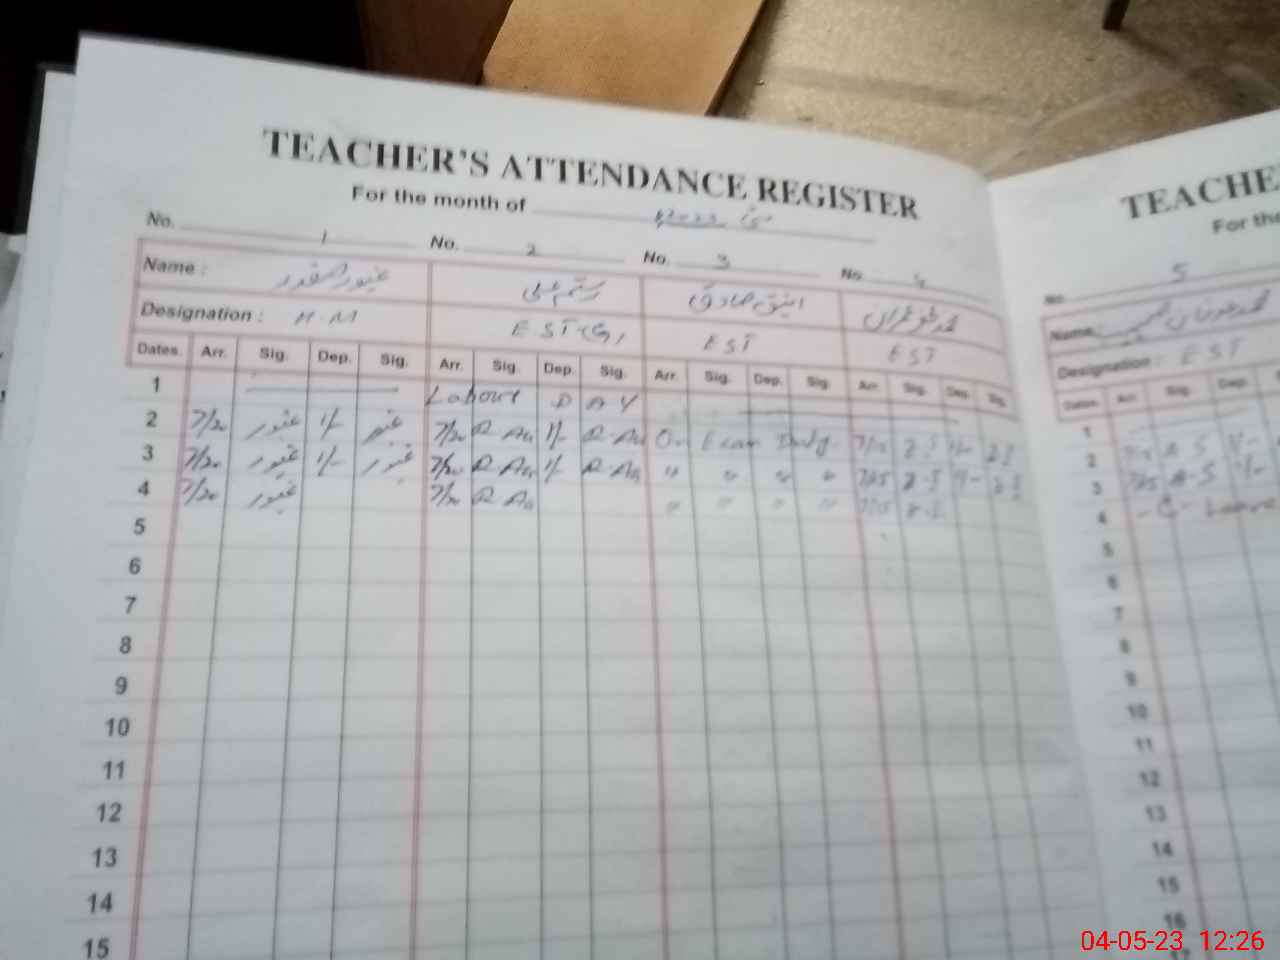 TEACHER'S ATTENDANCE REGISTER
For the month of مئی 2023
No. 1 No. 2 No. 3 No. 4
Name : غیور صفدر رستم علی انیق صادق محمد عمران
Designation : H.M EST EST EST
Dates. Arr. Sig. Dep. Sig. Arr. Sig. Dep. Sig. Arr. Sig. Dep. Sig. Arr. Sig. Dep. Sig.
1 Labour DAY
2 7/20 غیور 1/- غیور 7/20 R. Ali 1/- R. Ali On Exam Duty 7/15 1/-
3 7/20 غیور 1/- غیور 7/20 R. Ali 1/- R. Ali " " " " 7/25 1/-
4 7/20 غیور 7/20 R. Ali " " " " 7/15
5
6
7
8
9
10
11
12
13
14
15
TEACHE
For the
No. 5
Name محمد
Designation : EST
Dates. Arr. Sig. Dep.
1
2 A-S 1/-
3 7/25 A-S 1/-
4 -C- Leave
5
6
7
8
9
10
11
12
13
14
15
16
04-05-23 12:26